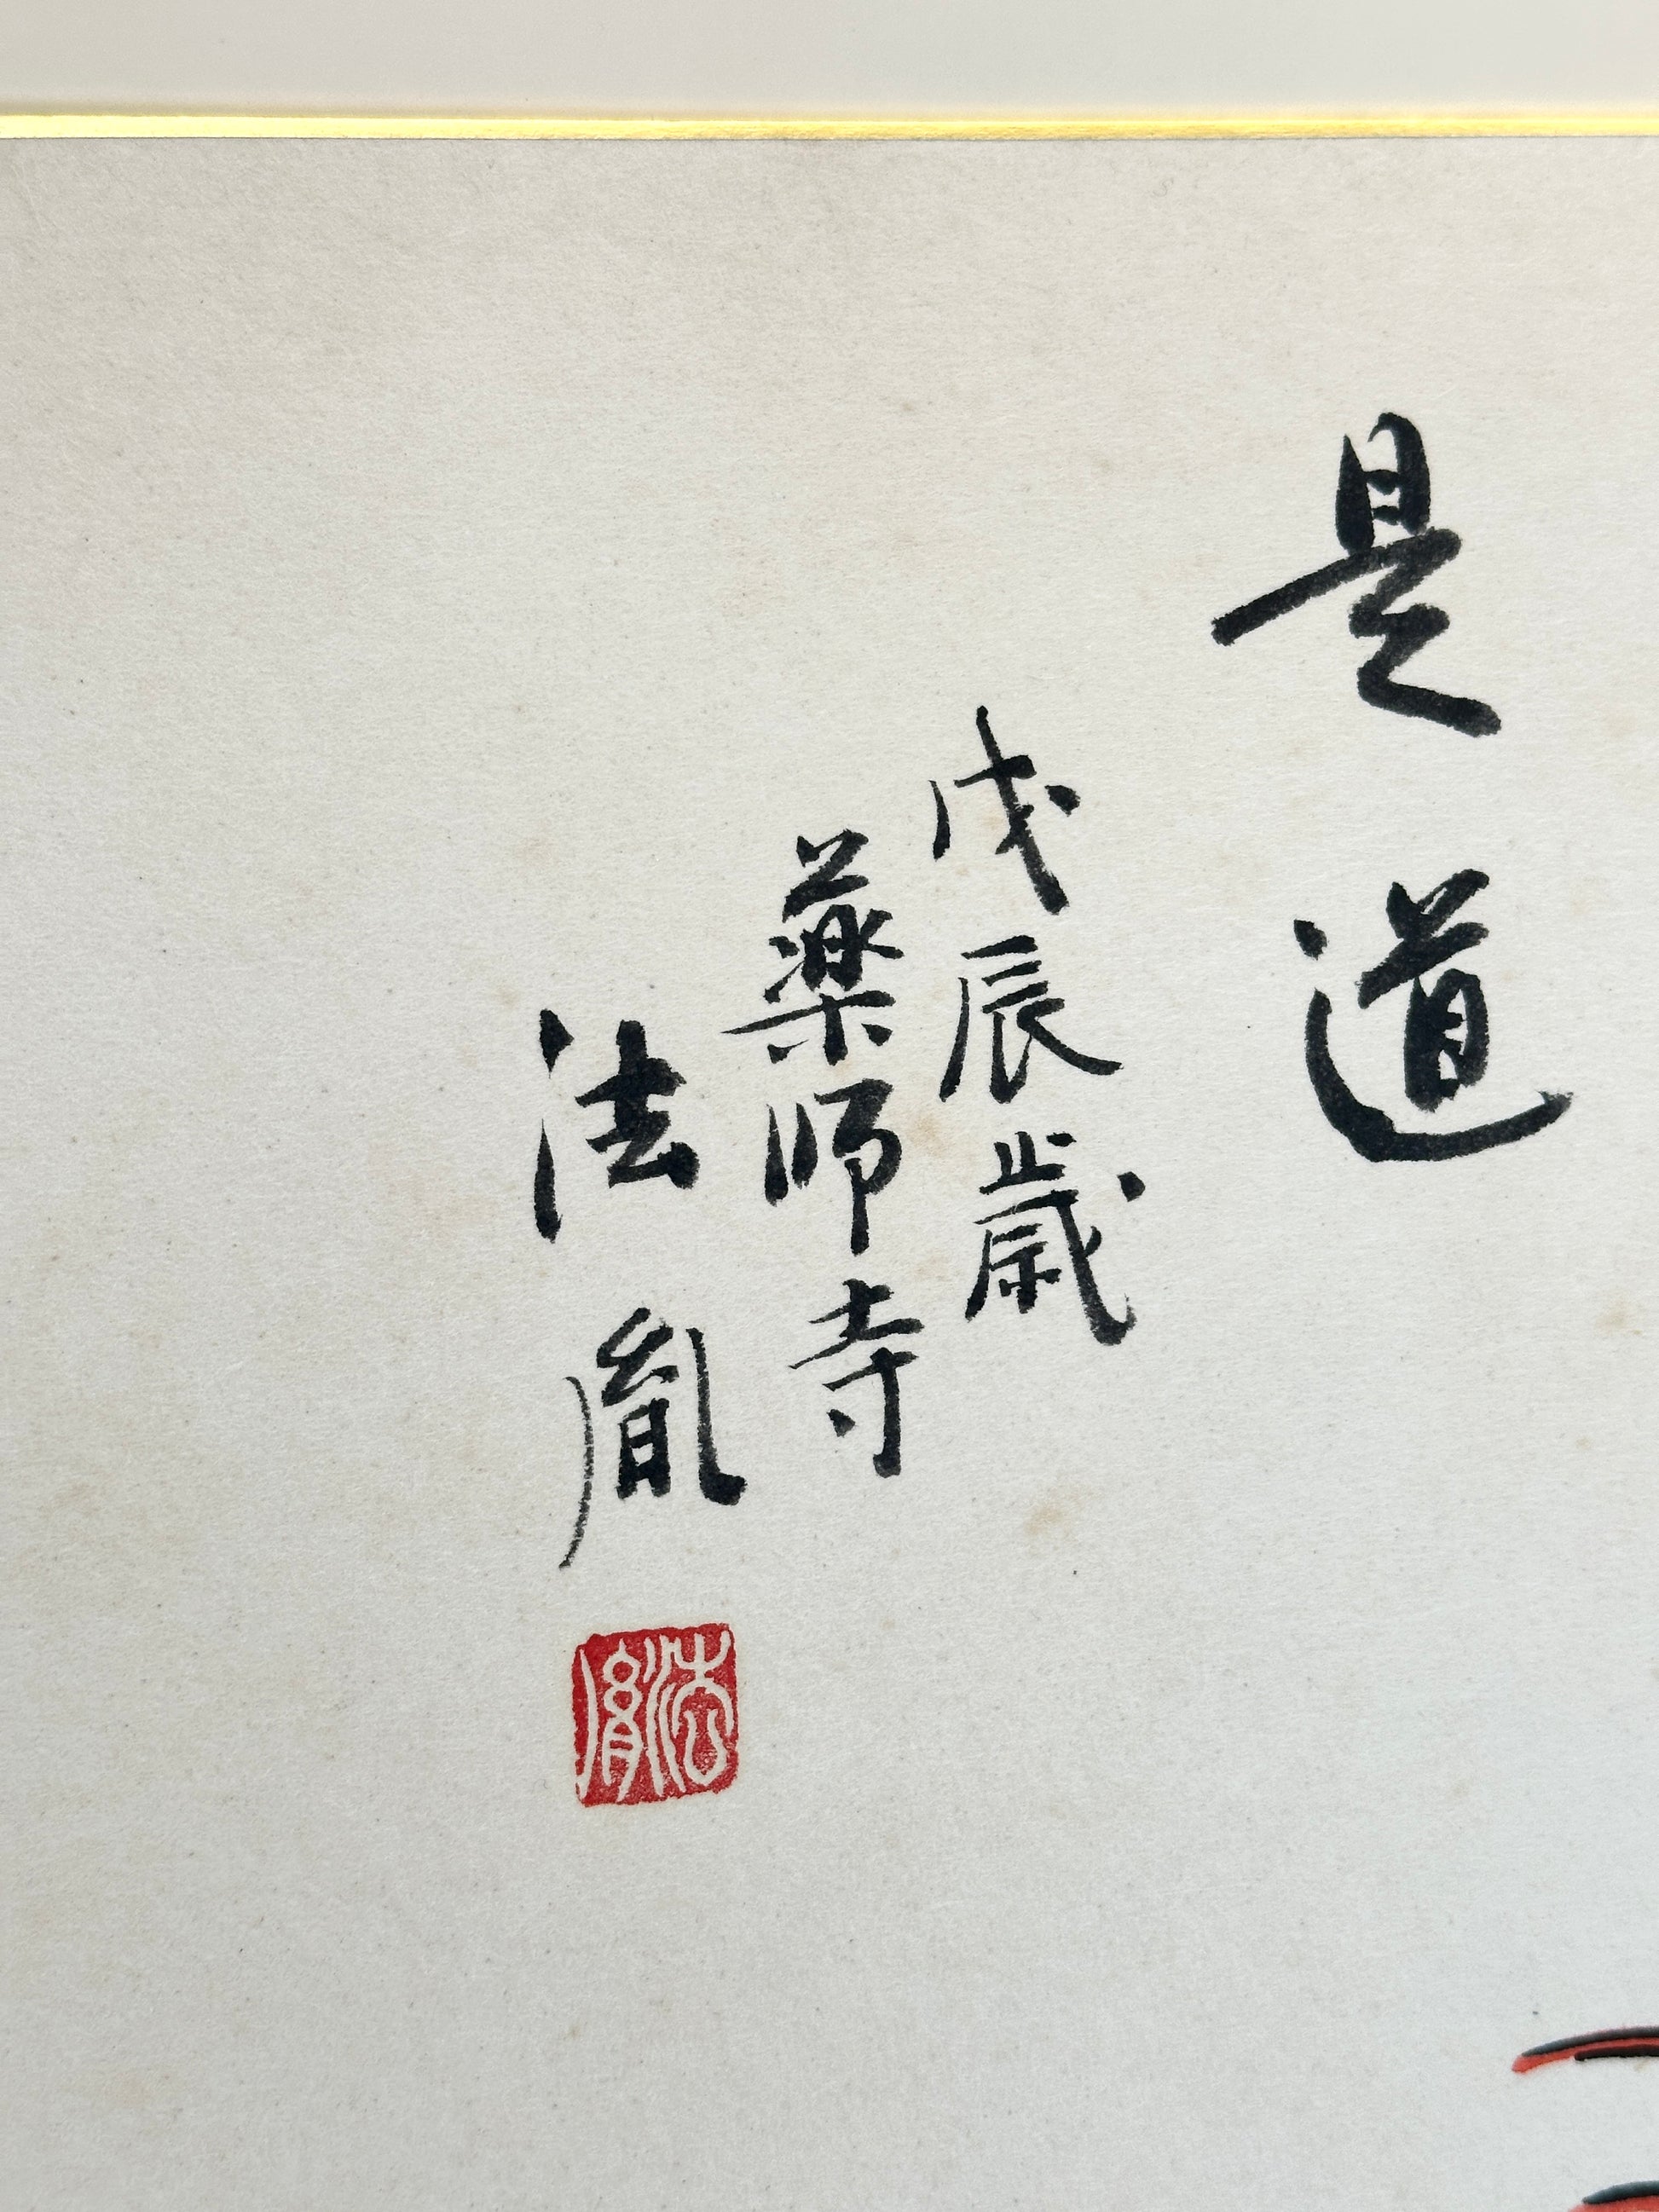 是道
戊辰歳
薬師寺
法胤
法胤